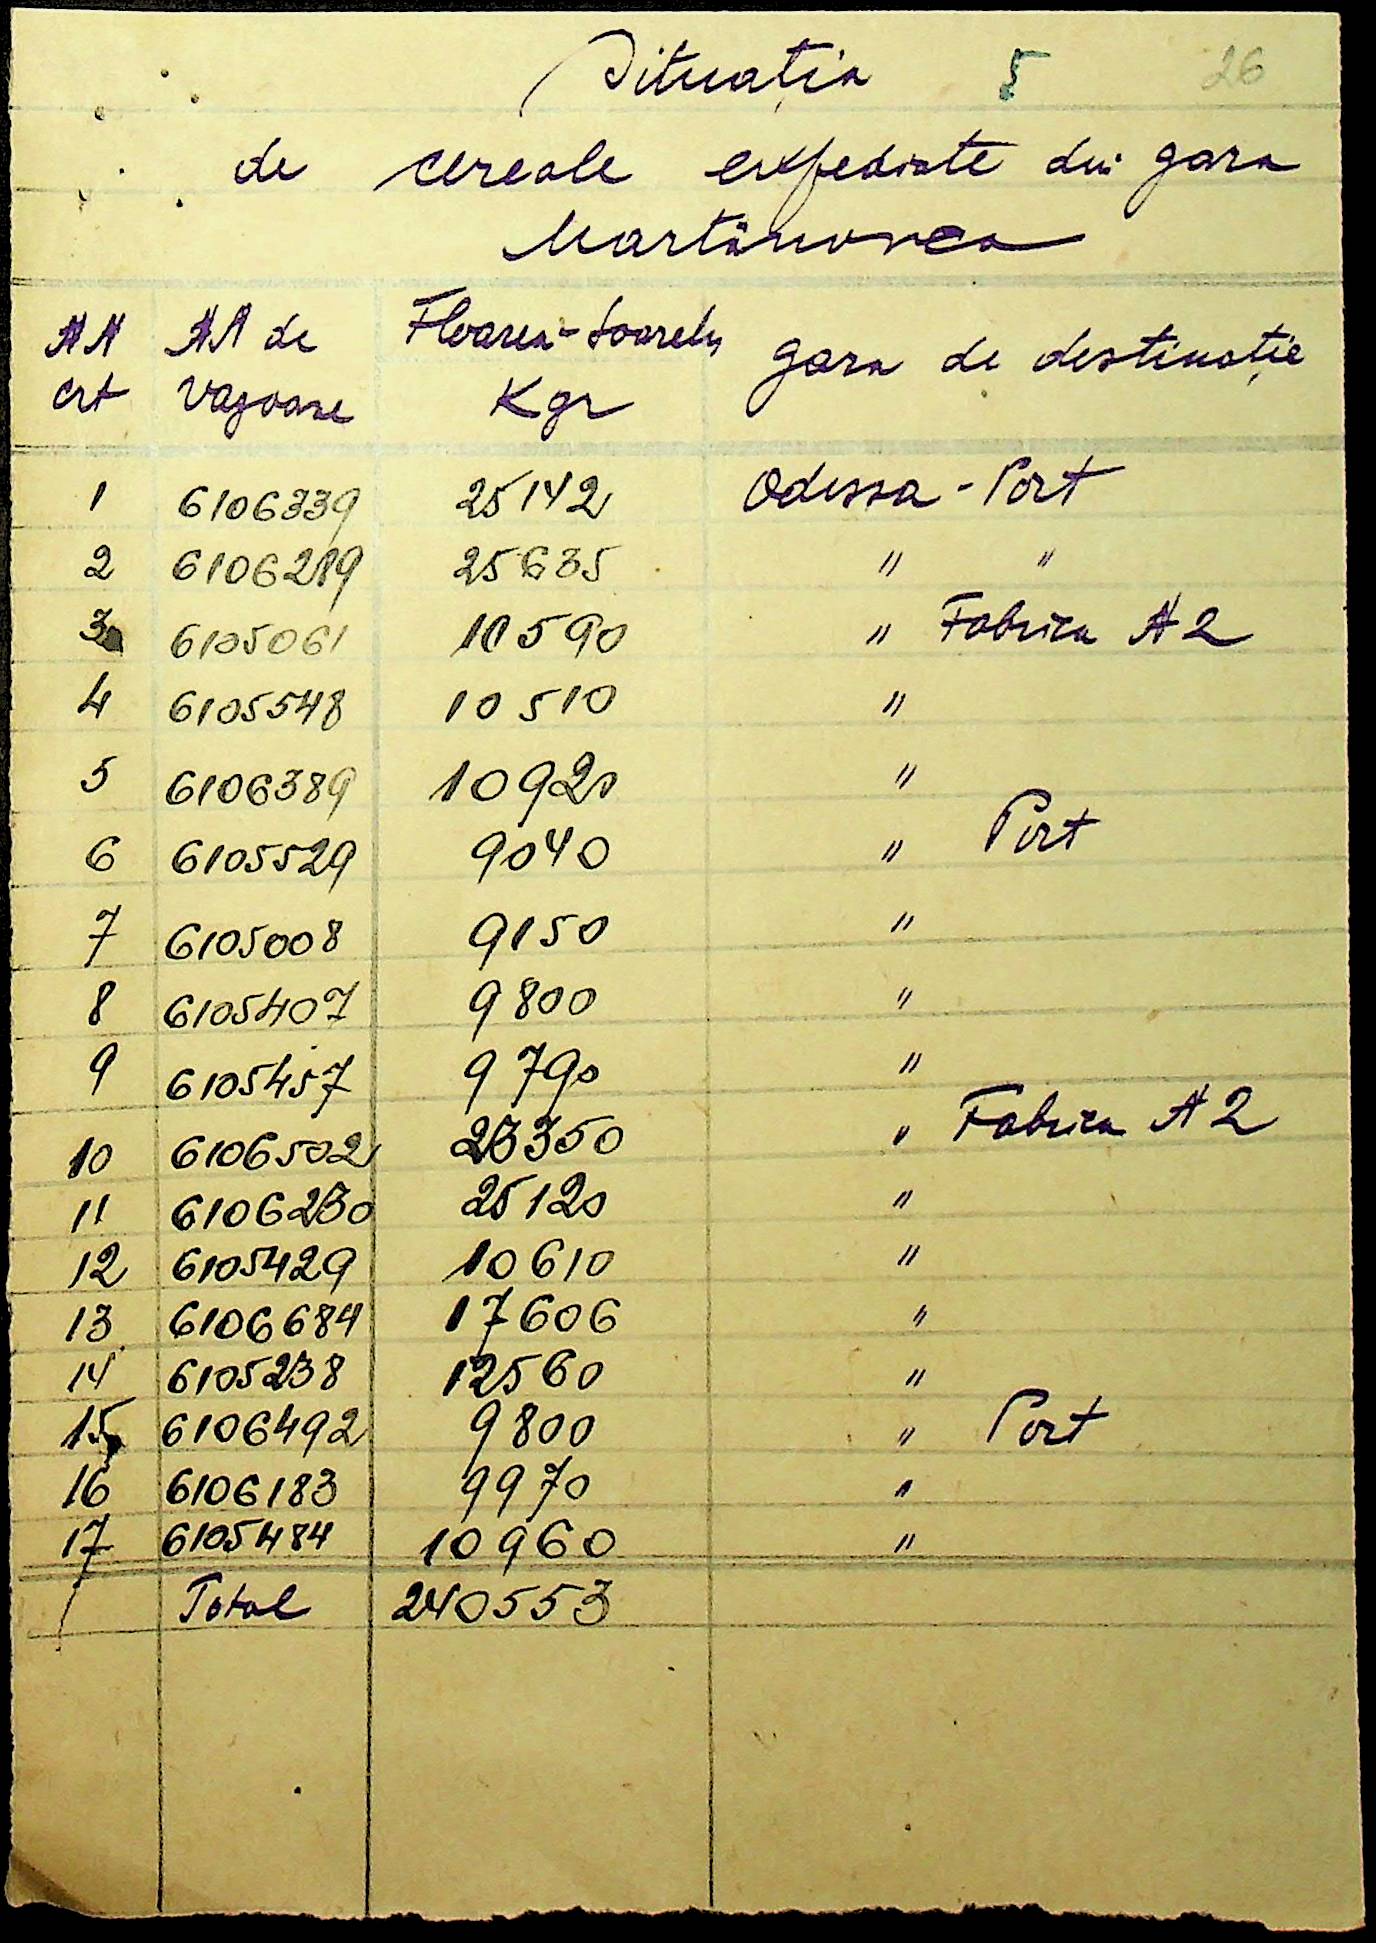 Situația 5 26
de cereale expediate din gara
Martânovca
NN crt NN de vagoane Floarea-Soarelui Kgr gara de destinație
1 6106339 25142 Odessa - Port
2 6106289 25635 " "
3 6105061 10590 " Fabrica N 2
4 6105548 10510 "
5 6106389 10920 "
6 6105529 9040 " Port
7 6105008 9150 "
8 6105407 9800 "
9 6105457 9790 "
10 6106502 23350 " Fabrica N 2
11 6106230 25120 "
12 6105429 10610 "
13 6106684 17606 "
14 6105238 12560 "
15 6106492 9800 " Port
16 6106183 9970 "
17 6105484 10960 "
Total 240553